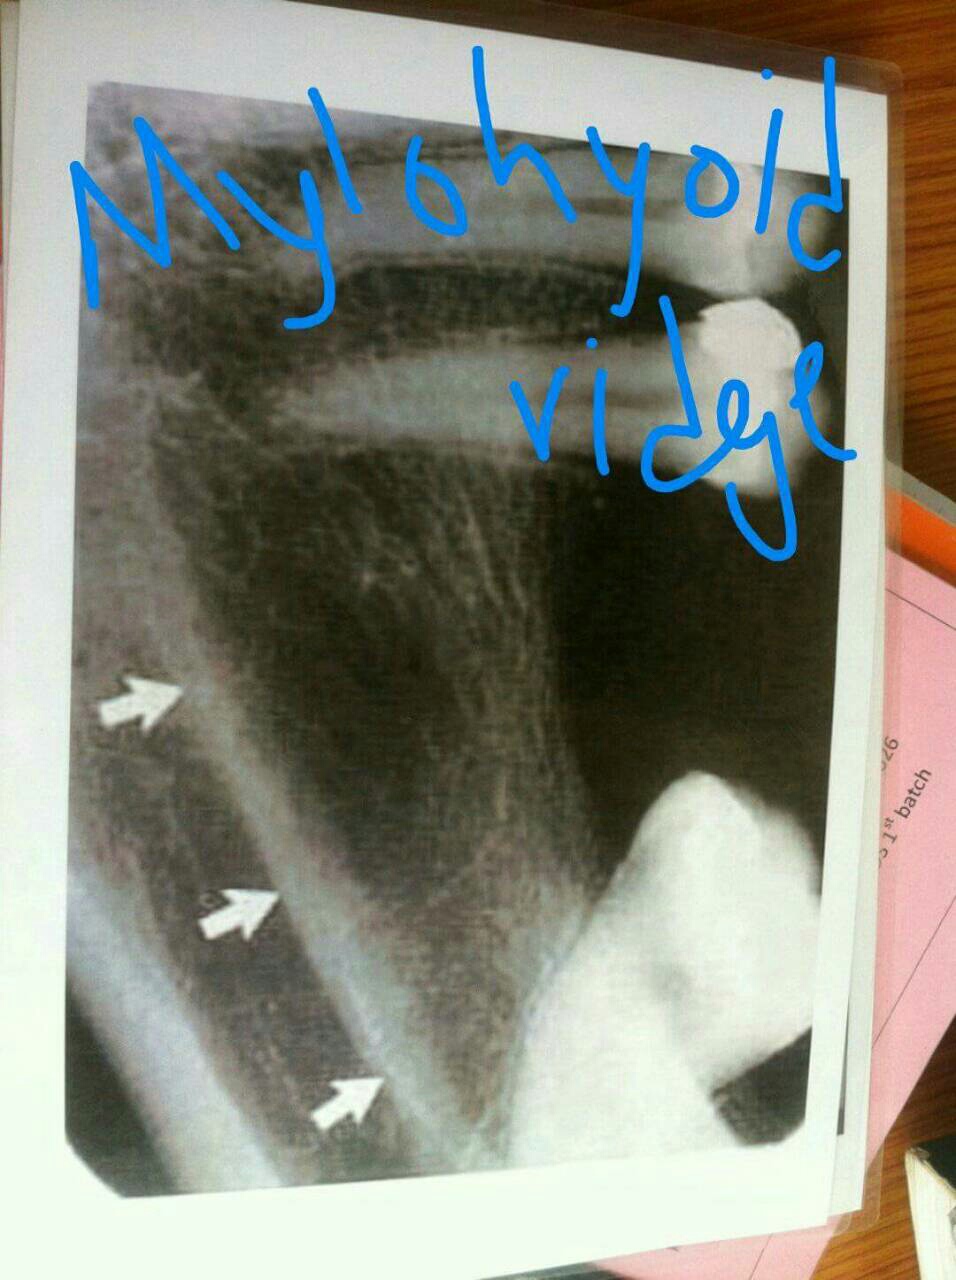 Mylohyoid
ridge
1st batch